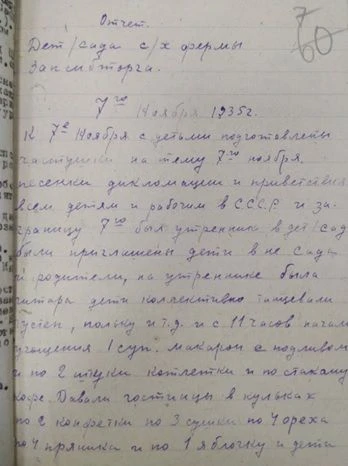 7
60
Отчет.
Дет/сада с/х фермы
Запсибторга.
7го Ноября 1935г.
К 7е Ноября с детьми подготовлены
частушки на тему 7го ноября
песенки дикломации и приветствия
всем детям и рабочим в СССР и за-
границу 7го был утренник в дет/сад
были приглашены дети в не сада
и родители, на утреннике была
гитара дети коллективно танцевали
польку и т.д. и с 11 часов начали
угощения 1 суп. макарон с подливом
и по 2 штуки котлетки и по стакану
кофе. Давали гостинцы в кульках
по 2 конфетки по 3 сушки по 4 ореха
по 4 пряника и по 1 яблочку и дети